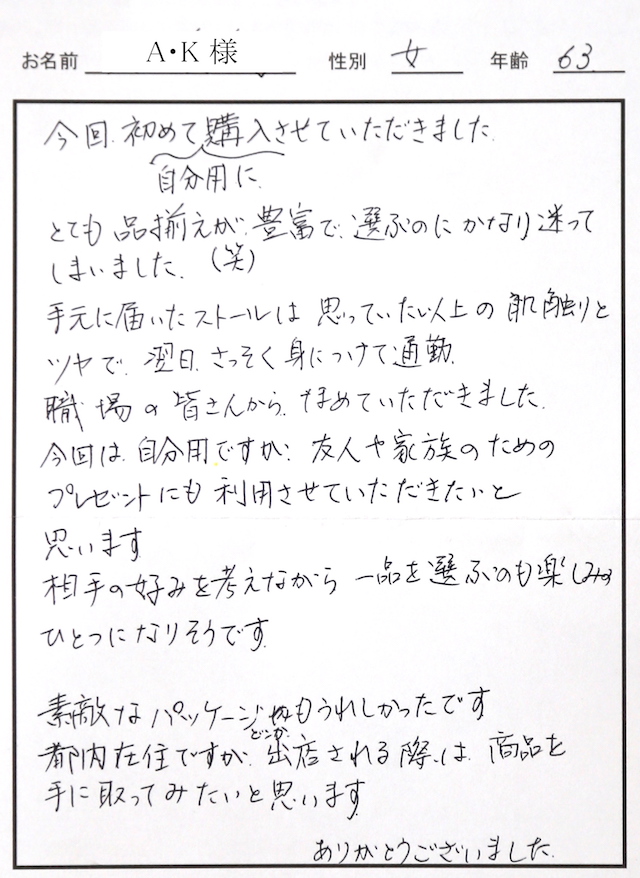 お名前 A・K 様 性別 女 年齢 63
今回、初めて購入させていただきました。
自分用に、
とても品揃えが、豊富で、選ぶのにかなり迷って
しまいました。(笑)
手元に届いたストールは思っていた以上の肌触りと
ツヤで、翌日、さっそく身につけて通勤。
職場の皆さんから、ほめていただきました。
今回は、自分用ですが、友人や家族のための
プレゼントにも利用させていただきたいと
思います
相手の好みを考えながら一品を選ぶのも楽しみの
ひとつになりそうです。
素敵なパッケージもうれしかったです
どこか、
都内在住ですが、出店される際、は、商品を
手に取ってみたいと思います。
ありがとうございました。